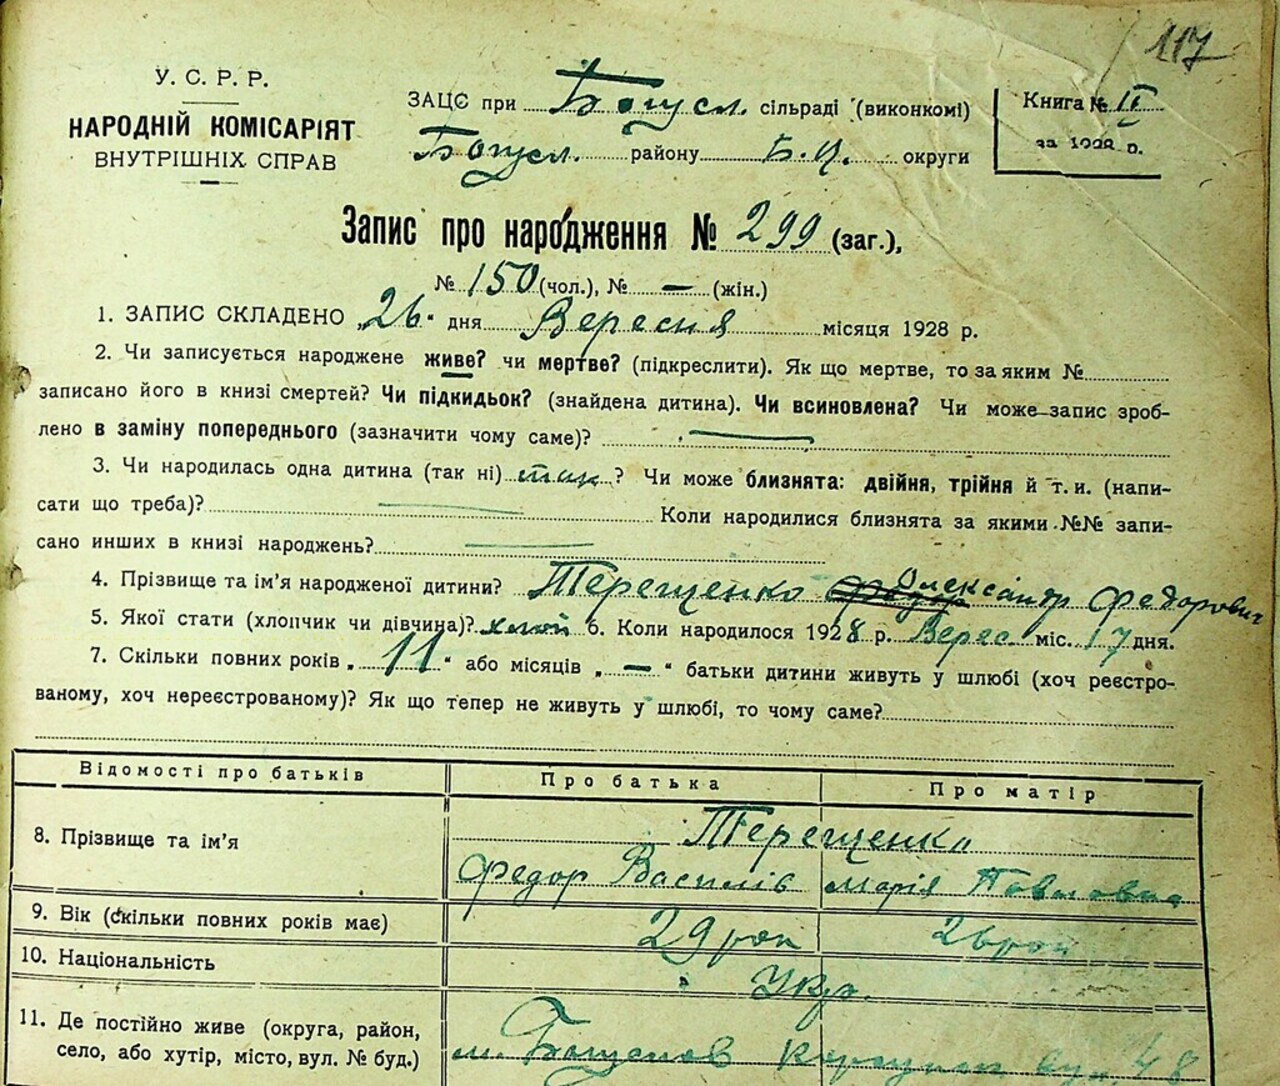 117
У. С. Р. Р.
НАРОДНІЙ КОМІСАРІЯТ
ВНУТРІШНІХ СПРАВ
ЗАЦС при Богусл. сільраді (виконкомі)
Богусл. району Б.Ц. округи
Книга № II
за 1928 р.
Запис про народження № 299 (заг.),
№ 150 (чол.), № — (жін.)
1. ЗАПИС СКЛАДЕНО „26" дня Вересня місяця 1928 р.
2. Чи записується народжене живе? чи мертве? (підкреслити). Як що мертве, то за яким №
записано його в книзі смертей? Чи підкидьок? (знайдена дитина). Чи всиновлена? Чи може запис зроб-
лено в заміну попереднього (зазначити чому саме)? —
3. Чи народилась одна дитина (так ні) так? Чи може близнята: двійня, трійня й т. и. (напи-
сати що треба)? — Коли народилися близнята за якими №№ запи-
сано инших в книзі народжень? —
4. Прізвище та ім'я народженої дитини? Терещенко Олександр Федорович
5. Якої стати (хлопчик чи дівчина)? 6. Коли народилося 1928 р. Верес міс. 17 дня.
7. Скільки повних років „11" або місяців „—" батьки дитини живуть у шлюбі (хоч реєстро-
ваному, хоч нереєстрованому)? Як що тепер не живуть у шлюбі, то чому саме?
Відомості про батьків Про батька Про матір
8. Прізвище та ім'я Терещенки
Федор Василів Марія Павловна
9. Вік (скільки повних років має) 29 рок 26 рок
10. Національність Укр.
11. Де постійно живе (округа, район,
село, або хутір, місто, вул. № буд.) м. Богуслав вул 48